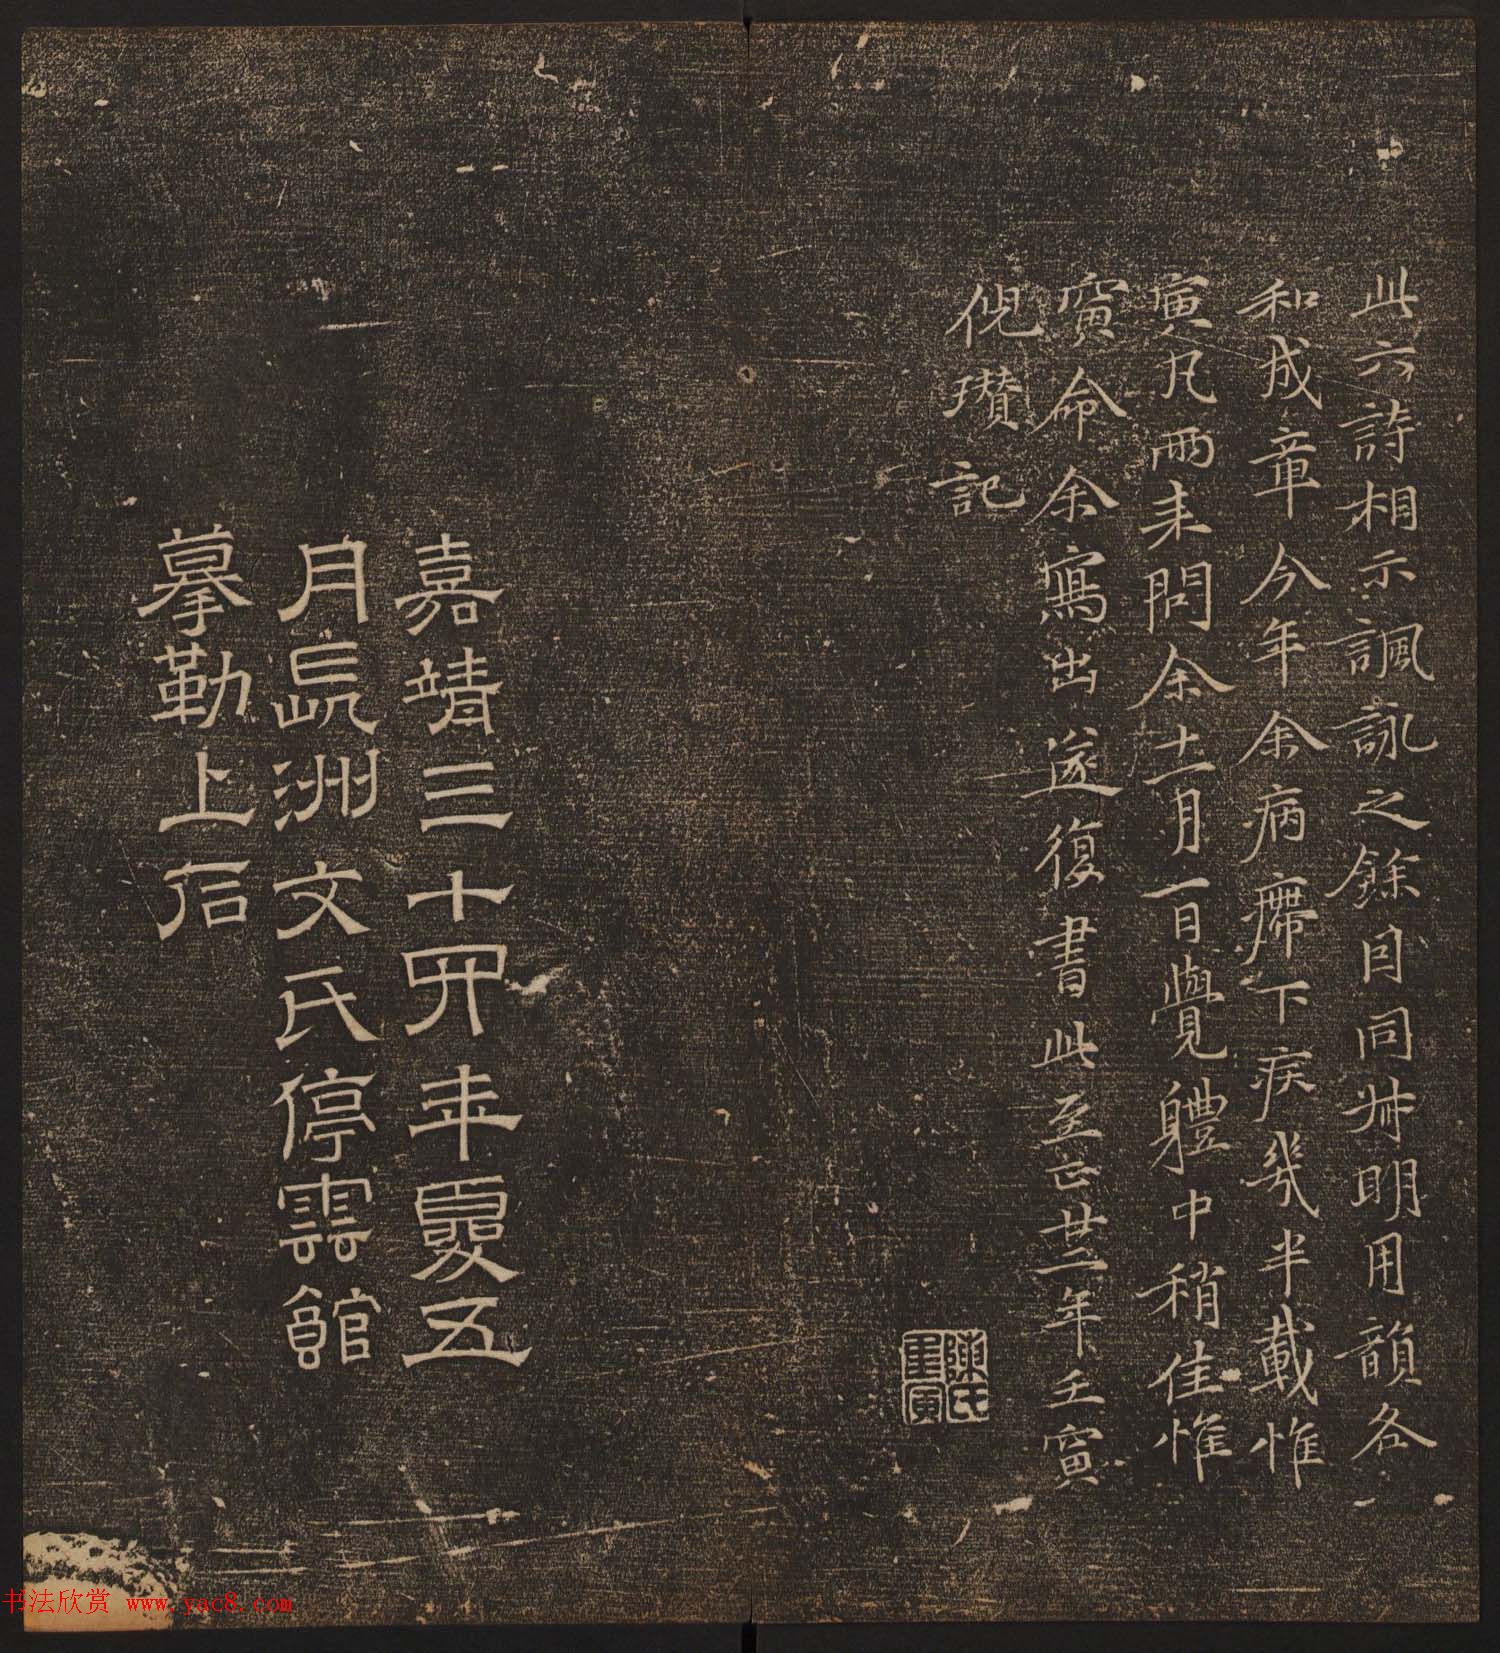 此六詩相示諷詠之餘因同叔明用韻各
和成章今年余病滯下疾幾半載惟
寅凡兩来問余十一月一日覺體中稍佳惟
寅命余寫出遂復書此至正廿二年壬寅
倪瓚記
陳氏
惟寅
嘉靖三十四年夏五
月長洲文氏停雲館
摹勒上石
书法欣赏 www.yac8.com